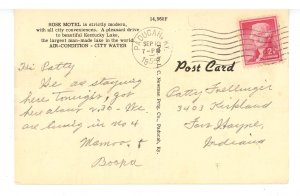 ROSE MOTEL is strictly modern,
with all city conveniences. A pleasant drive
to beautiful Kentucky Lake,
the largest man-made lake in the world.
AIR-CONDITION - CITY WATER
14,562F
PADUCAH, KY.
SEP 10
7-PM
Post Card
2¢
Hi Patty
We are staying
here tonight, got
here about 2:30. We
are living in No 4
Mamoo &
Boopa
Patty Frellinger
3403 Kirkland
Fort Wayne,
Indiana